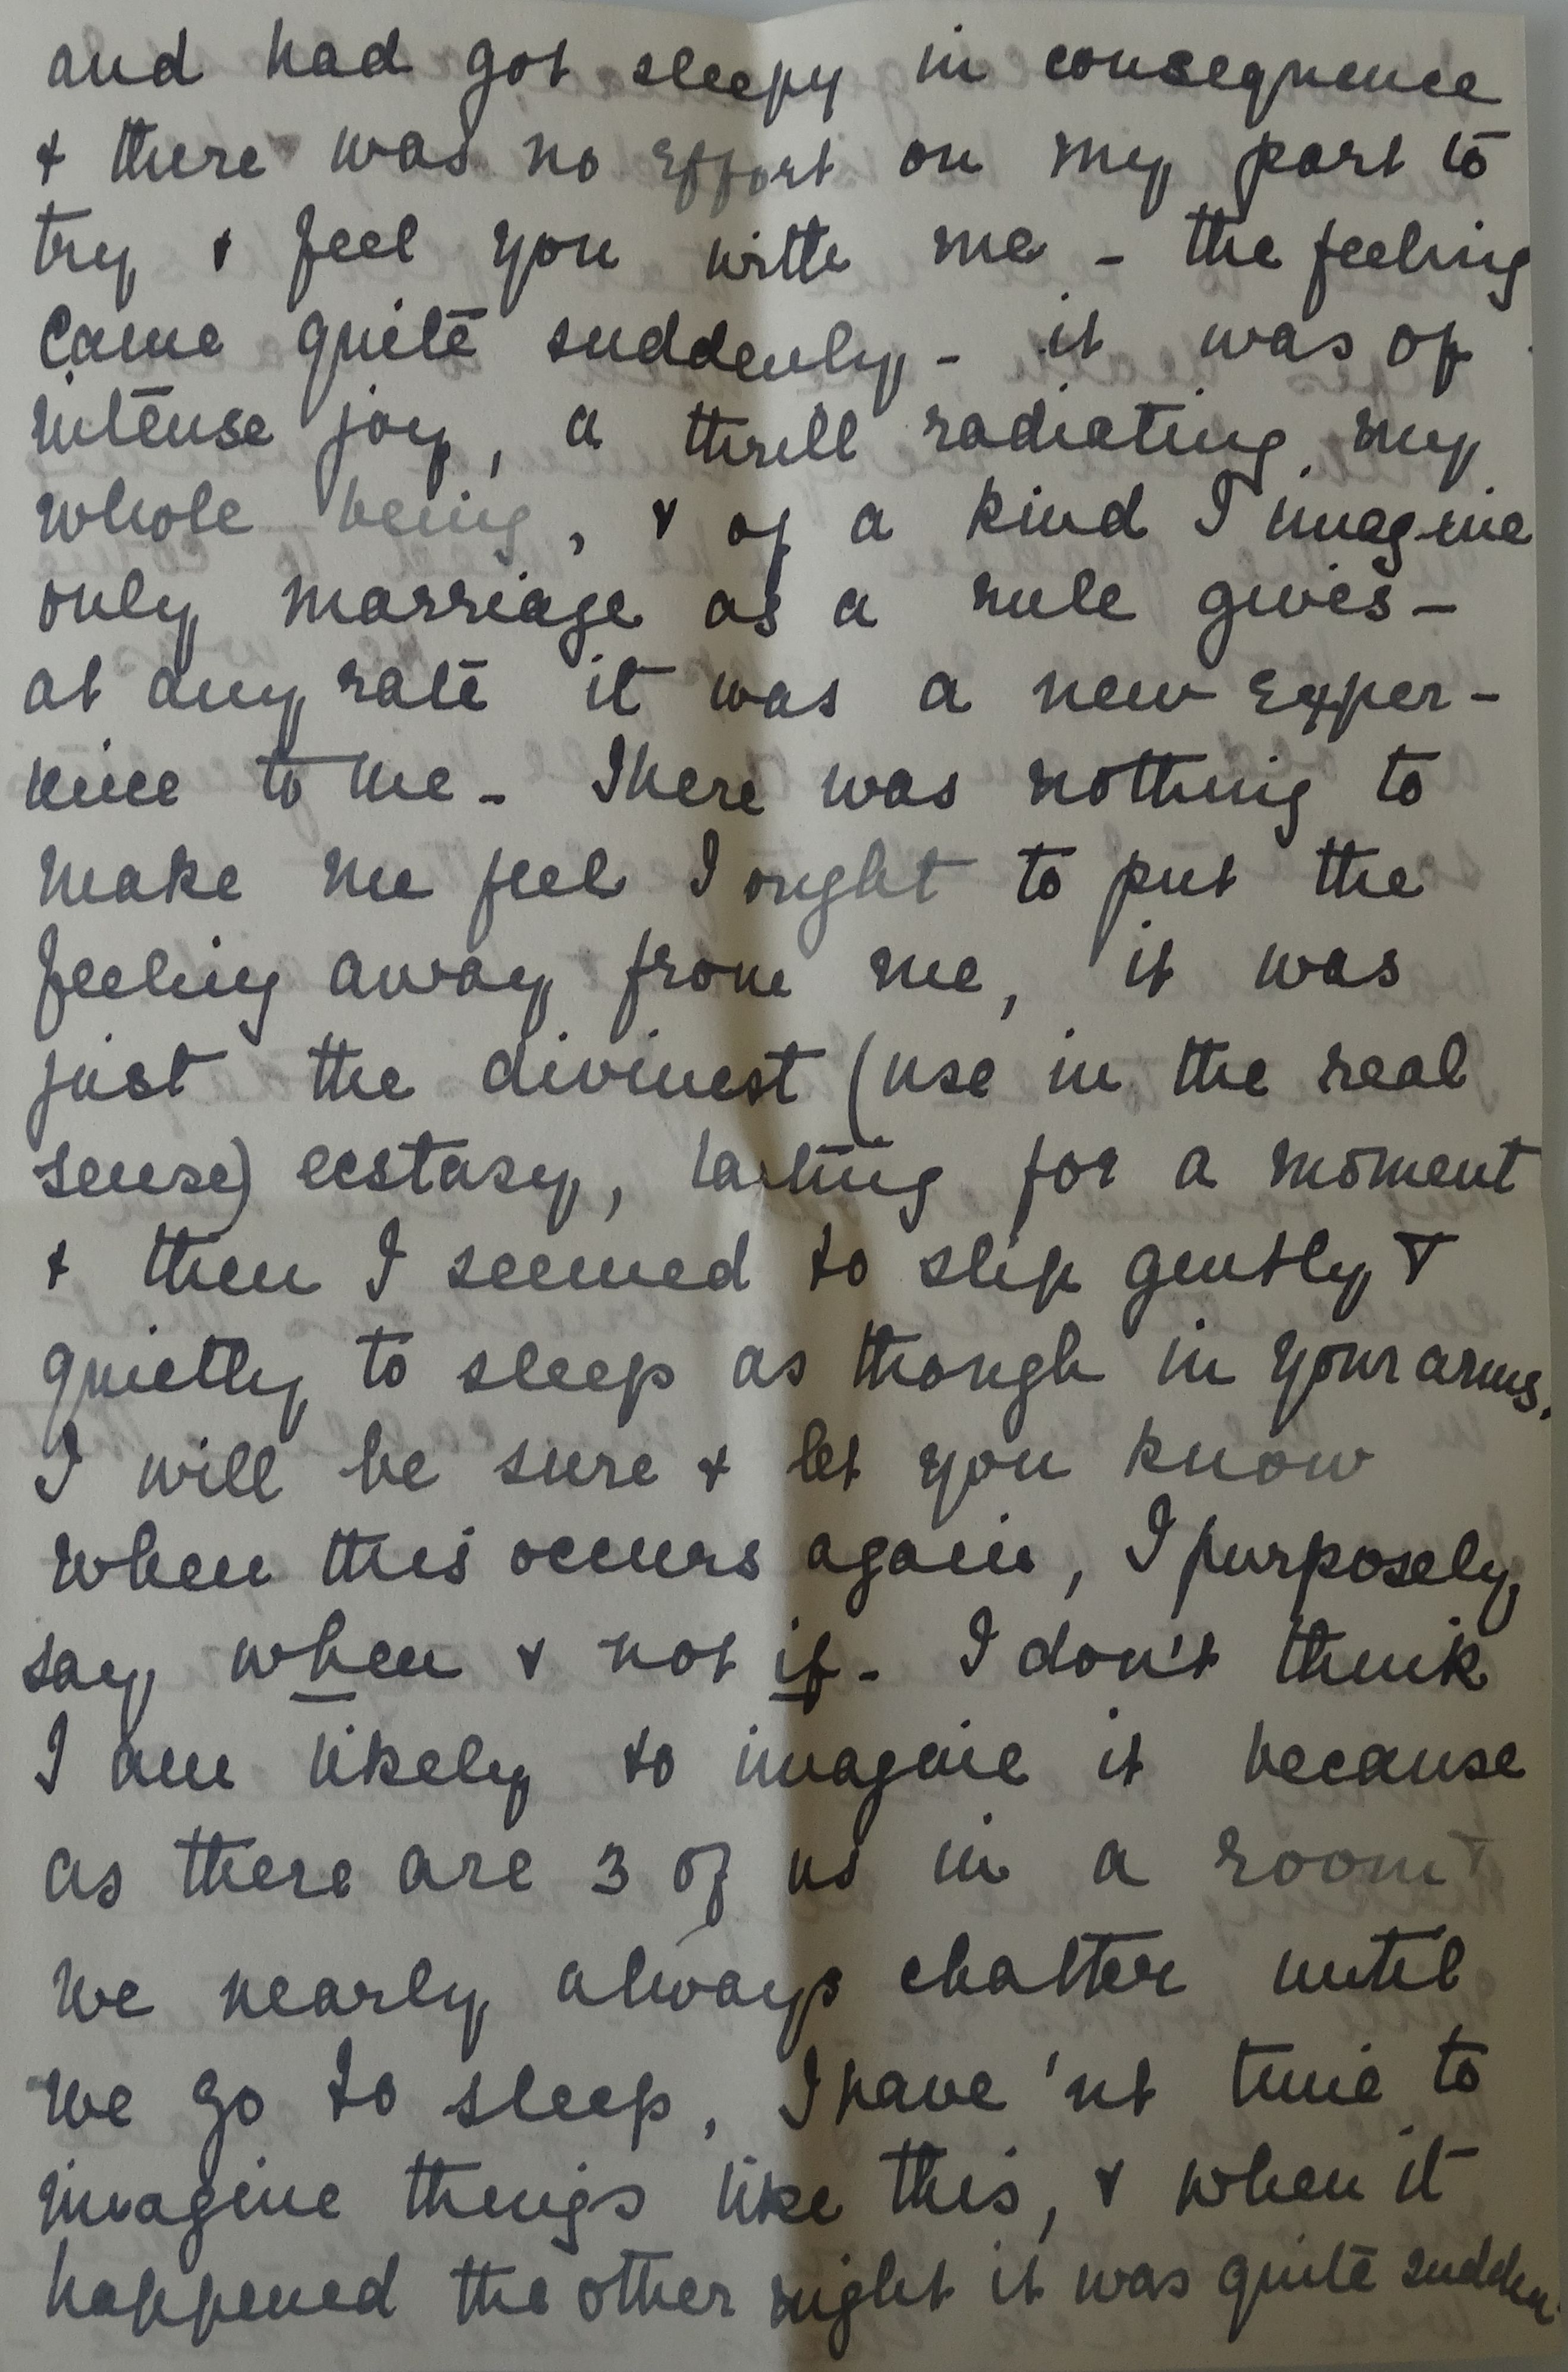 and had got sleepy in consequence
& there was no effort on my part to
try & feel you with me - the feeling
came quite suddenly - it was of
intense joy, a thrill radiating my
whole being, & of a kind I imagine
only marriage as a rule gives -
at any rate it was a new exper-
ience to me - There was nothing to
make me feel I ought to put the
feeling away from me, it was
just the divinest (use in the real
sense) ecstasy, lasting for a moment
& then I seemed to slip gently &
quietly to sleep as though in your arms.
I will be sure & let you know
when this occurs again, I purposely
say when & not if - I don't think
I am likely to imagine it because
as there are 3 of us in a room &
we nearly always chatter until
we go to sleep, I have 'nt time to
imagine things like this, & when it
happened the other night it was quite sudden.